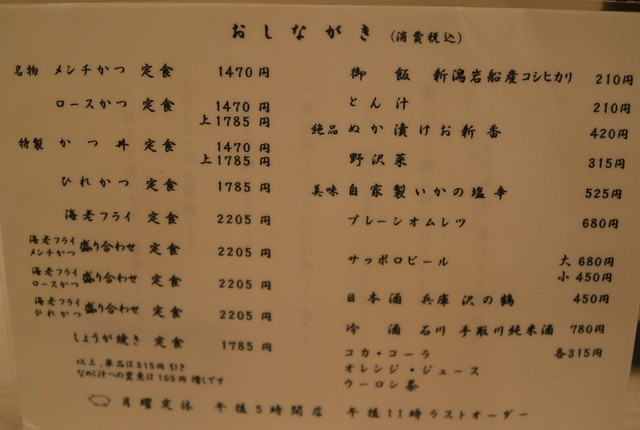 おしながき (消費税込)
名物 メンチかつ 定食 1470円
ロースかつ 定食 1470円
上1785円
特製 かつ丼 定食 1470円
上1785円
ひれかつ 定食 1785円
海老フライ 定食 2205円
海老フライ メンチかつ 盛り合わせ 定食 2205円
海老フライ ロースかつ 盛り合わせ 定食 2205円
海老フライ ひれかつ 盛り合わせ 定食 2205円
しょうが焼き 定食 1785円
以上、単品は315円 引き
なめこ汁への変更は105円 増しです
御飯 新潟岩船産コシヒカリ 210円
とん汁 210円
絶品 ぬか漬けお新香 420円
野沢菜 315円
美味 自家製いかの塩辛 525円
プレーンオムレツ 680円
サッポロビール 大 680円
小 450円
日本酒 兵庫 沢の鶴 450円
冷酒 石川 手取川純米酒 780円
コカ・コーラ 各315円
オレンジ・ジュース
ウーロン茶
月曜定休 午後5時開店 午後11時ラストオーダー